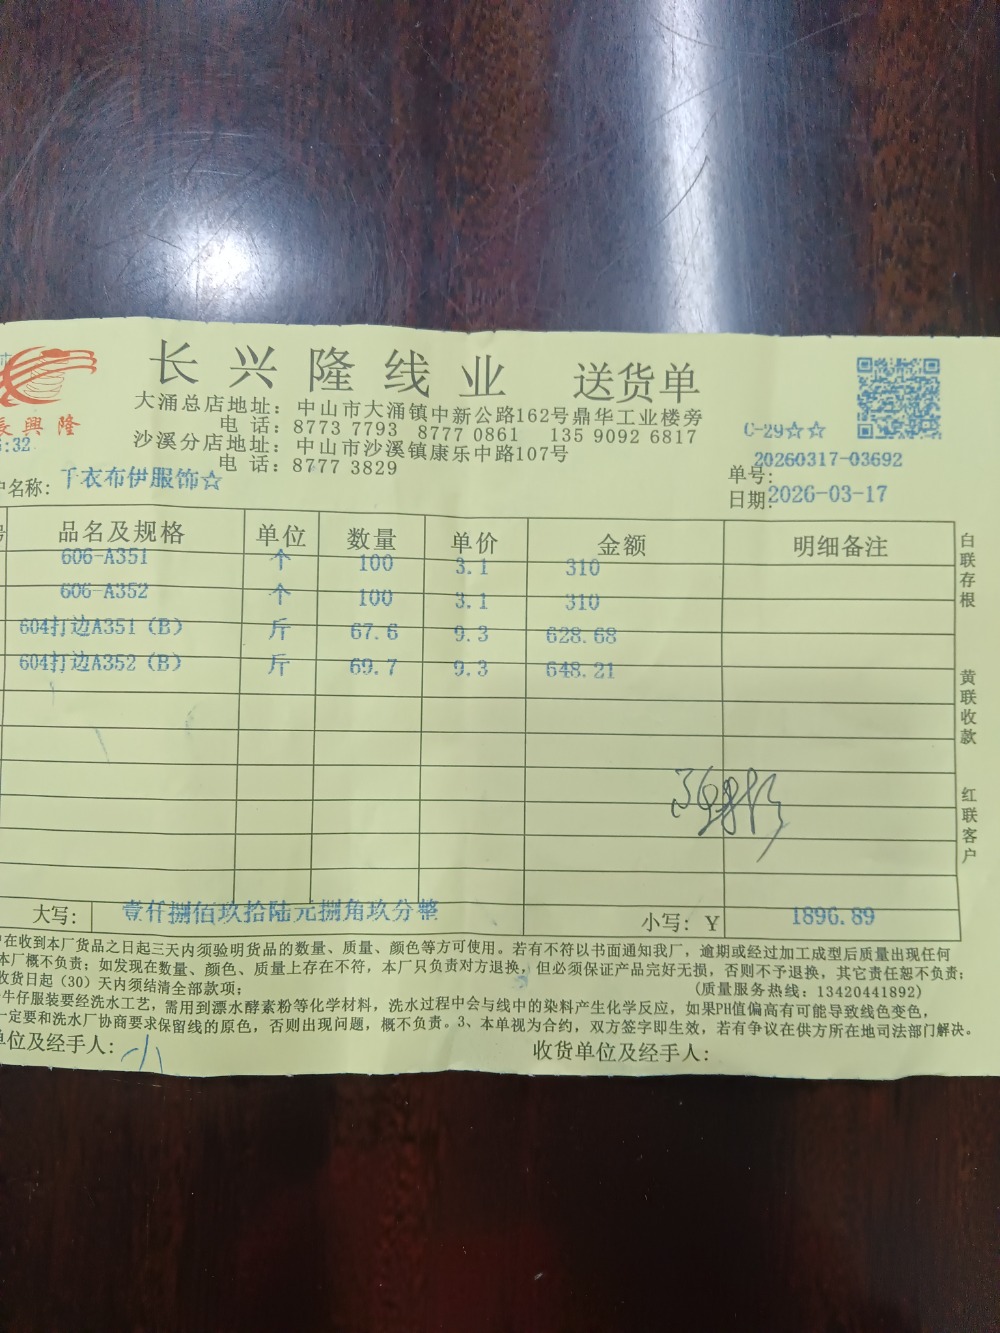 长兴隆线业 送货单
大涌总店地址：中山市大涌镇中新公路162号鼎华工业楼旁
电话：8773 7793 8777 0861 135 9092 6817
沙溪分店地址：中山市沙溪镇康乐中路107号
电话：8777 3829
長興隆
:32
C-29☆☆
单号：20260317-03692
日期：2026-03-17
户名称：千衣布伊服饰☆
号 品名及规格 单位 数量 单价 金额 明细备注
606-A351 个 100 3.1 310
606-A352 个 100 3.1 310
604打边A351（B） 斤 67.6 9.3 628.68
604打边A352（B） 斤 69.7 9.3 648.21
白联存根 黄联收款 红联客户
大写：壹仟捌佰玖拾陆元捌角玖分整 小写：Y 1896.89
户在收到本厂货品之日起三天内须验明货品的数量、质量、颜色等方可使用。若有不符以书面通知我厂，逾期或经过加工成型后质量出现任何
本厂概不负责；如发现在数量、颜色、质量上存在不符，本厂只负责对方退换，但必须保证产品完好无损，否则不予退换，其它责任恕不负责；
收货日起（30）天内须结清全部款项； (质量服务热线：13420441892)
牛仔服装要经洗水工艺，需用到漂水酵素粉等化学材料，洗水过程中会与线中的染料产生化学反应，如果PH值偏高有可能导致线色变色，
一定要和洗水厂协商要求保留线的原色，否则出现问题，概不负责。3、本单视为合约，双方签字即生效，若有争议在供方所在地司法部门解决。
单位及经手人：小 收货单位及经手人：